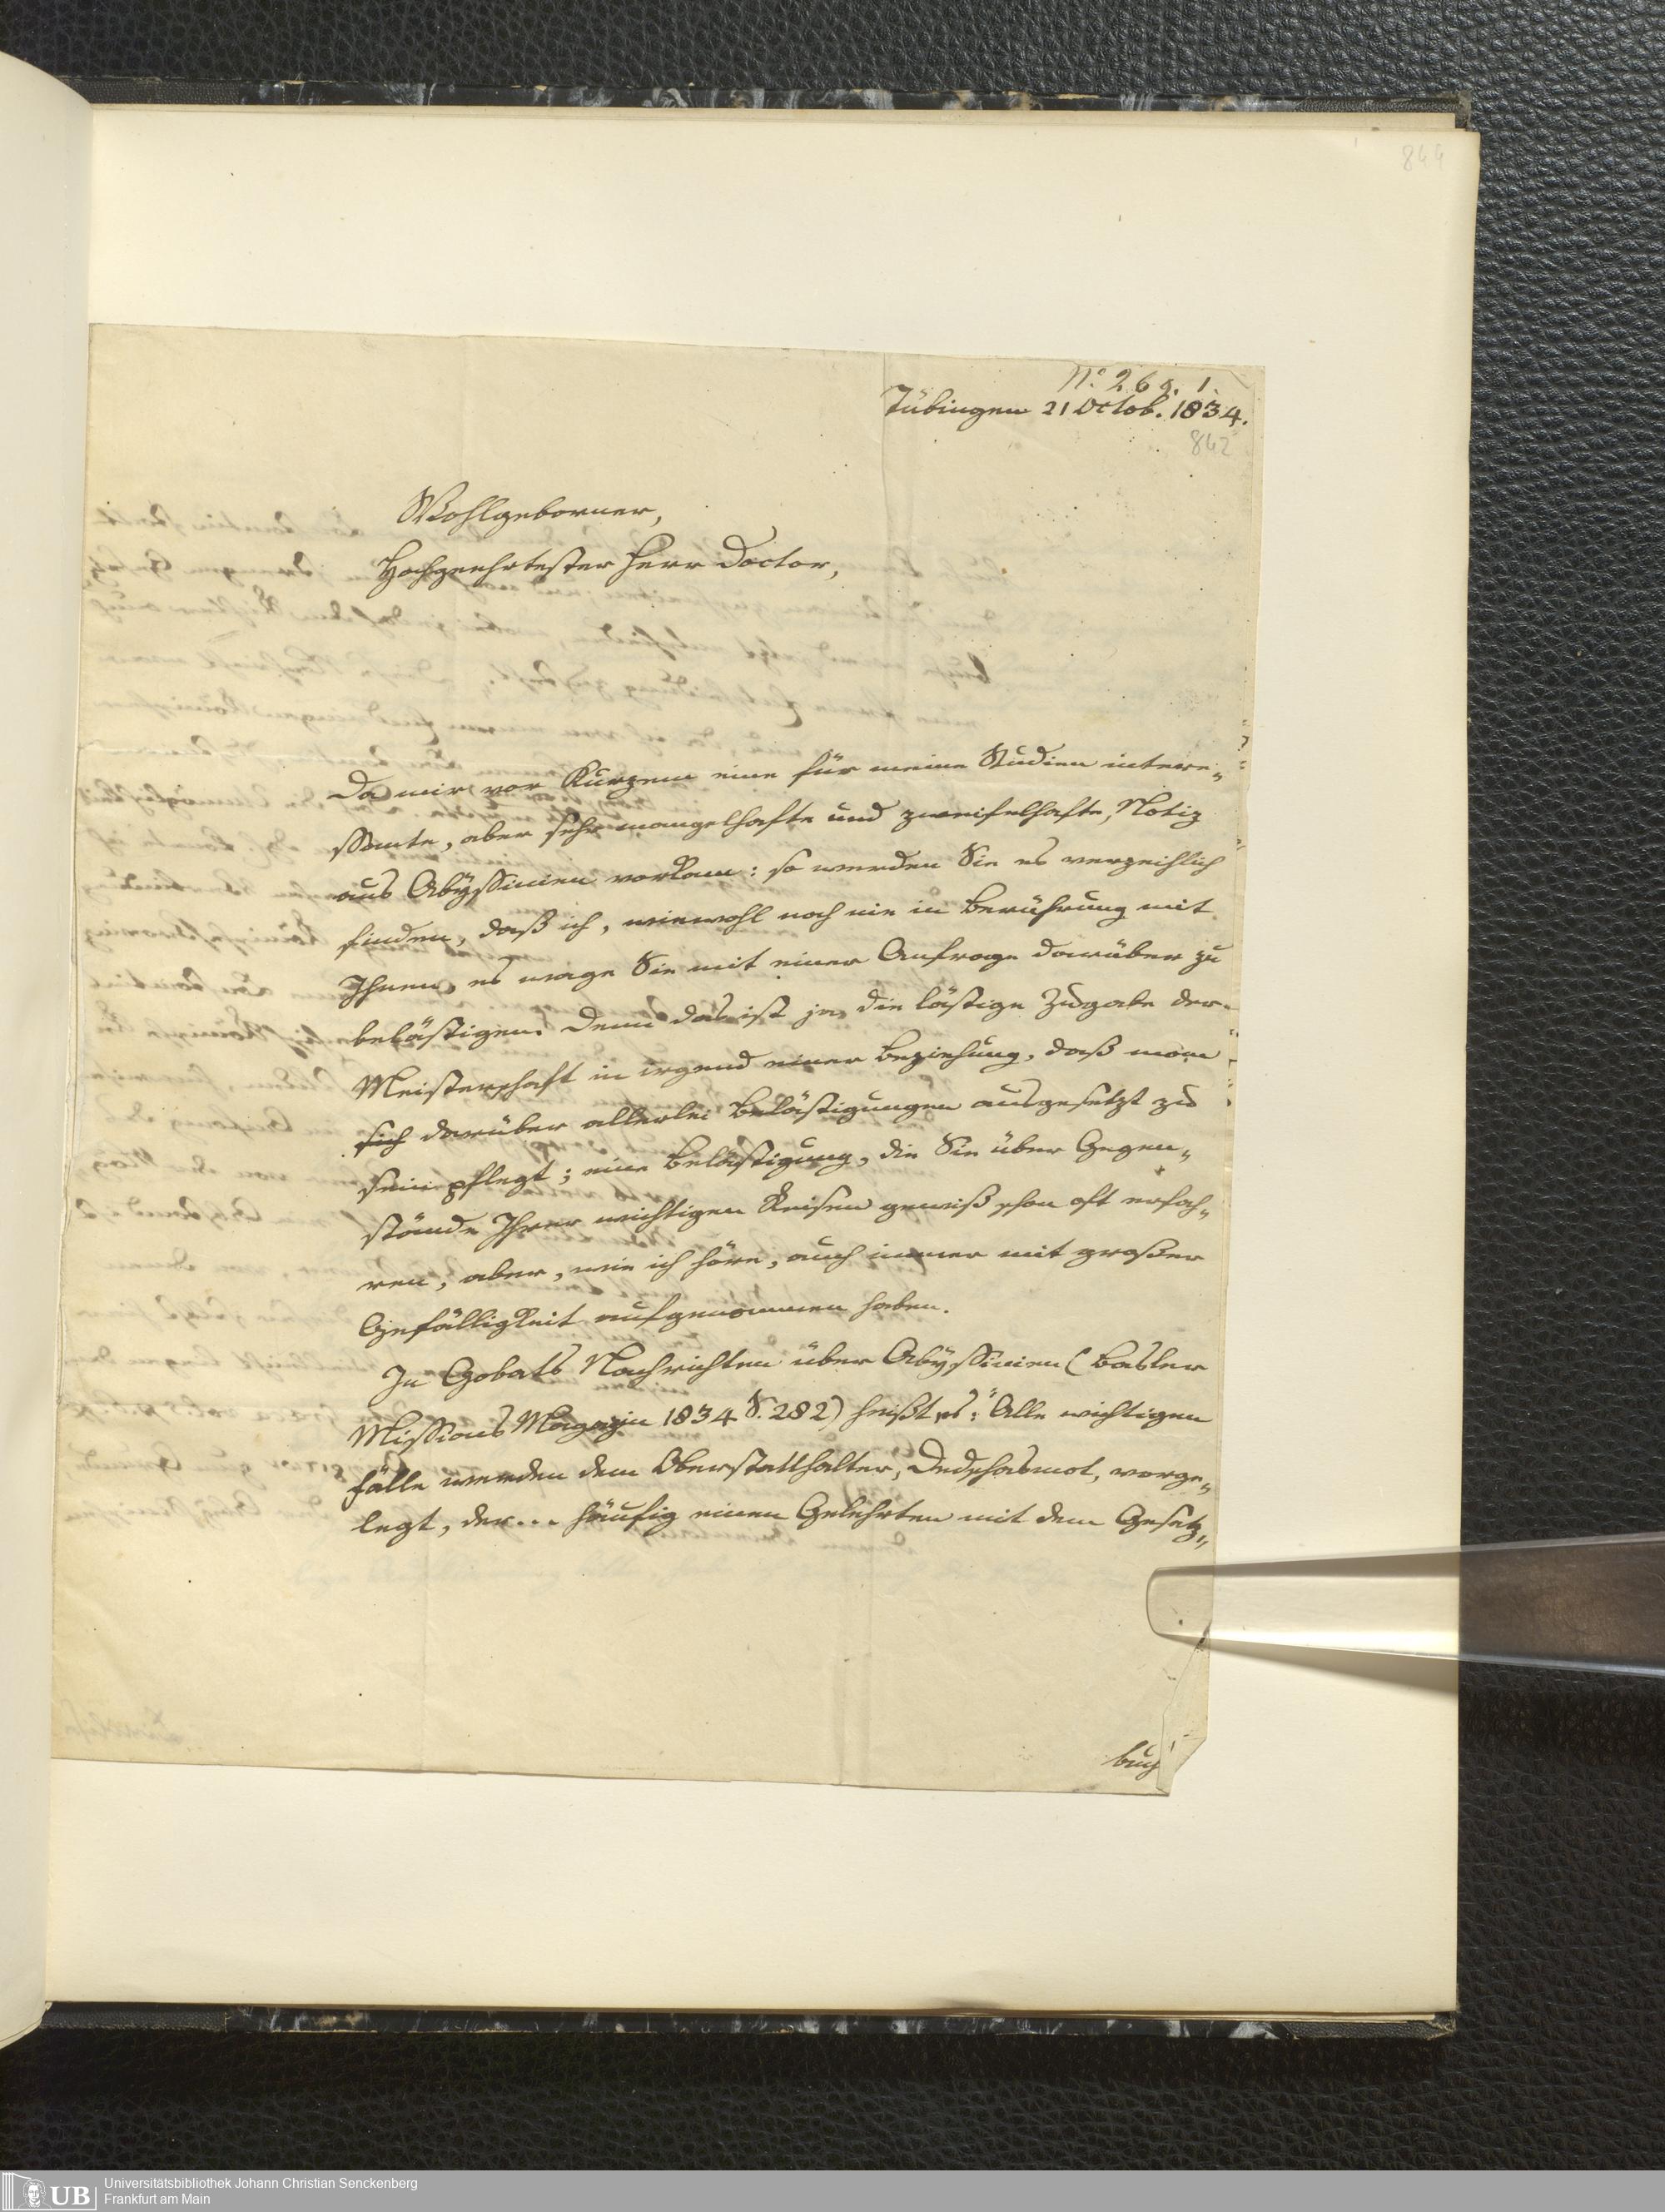 844
N.º 269. 1.
Tübingen 21 Octob. 1834.
842
Wohlgeborner,
Hochgeehrtester Herr Doctor,
Da mir vor Kurzem eine für meine Studien intere-
ssante, aber sehr mangelhafte und zweifelhafte, Notiz
aus Abyssinien vorkam: so werden Sie es verzeihlich
finden, daß ich, wiewohl noch nie in Berührung mit
Ihnen, es wage Sie mit einer Anfrage darüber zu
belästigen. Denn das ist ja die lästige Zugabe der
Meisterschaft in irgend einer Beziehung, daß man
sich darüber allerlei Belästigungen ausgesetzt zu
sein pflegt; eine Belästigung, die Sie über Gegen-
stände Ihrer wichtigen Reisen gewiß schon oft erfah-
ren, aber, wie ich höre, auch immer mit großer
Gefälligkeit aufgenommen haben.
In Gobats Nachrichten über Abyssinien (Basler
Missions Magazin 1834 S. 282) heißt es: "Alle wichtigen
Fälle werden dem Oberstatthalter, Dedschasmat, vorge-
legt, der... häufig einen Gelehrten mit dem Gesetz-
buch
Universitätsbibliothek Johann Christian Senckenberg
Frankfurt am Main
UB